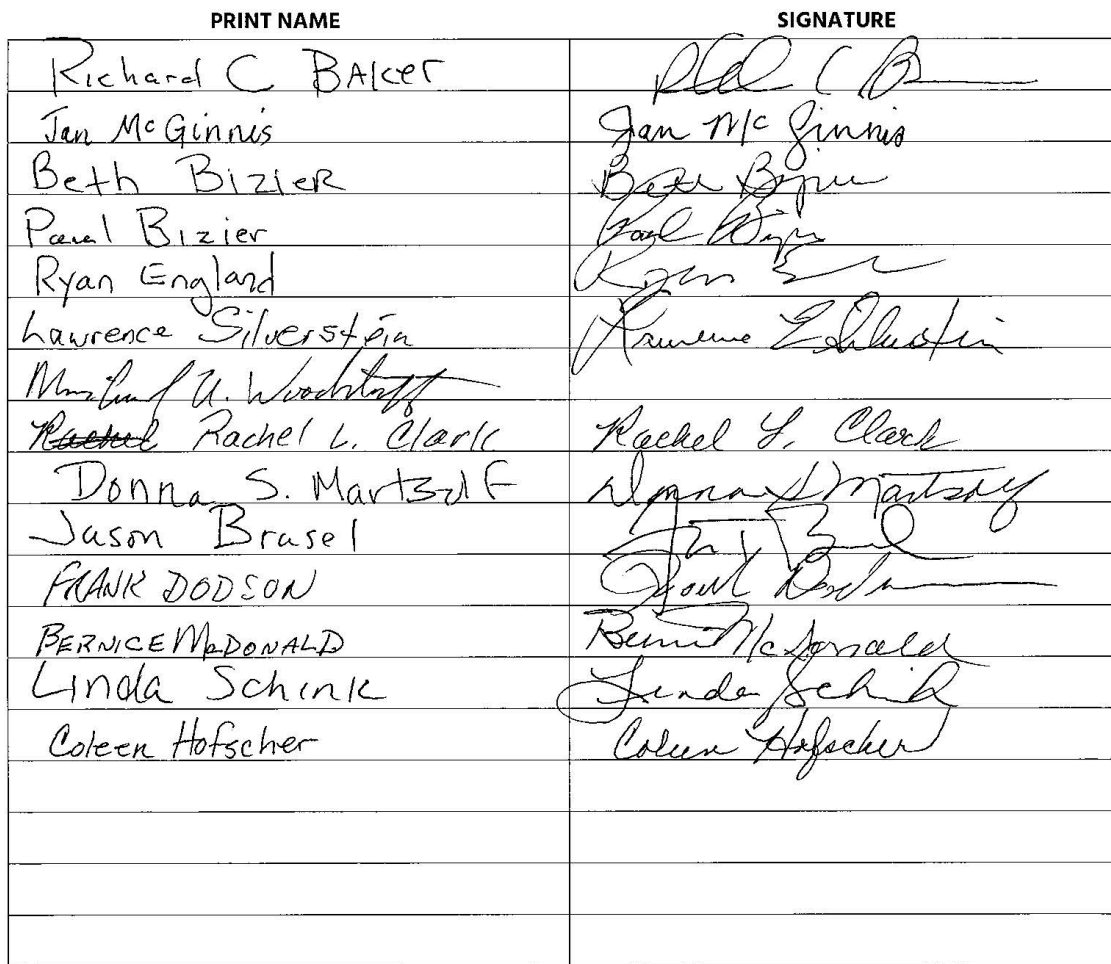 PRINT NAME SIGNATURE
Richard C BAKer
Jan McGinnis Jan McGinnis
Beth BizieR Beth Bizier
Paul Bizier Paul Bizier
Ryan England Ryan
Lawrence Silverstein Lawrence E Silverstein
U.
Rachel Rachel L. Clark Rachel L. Clark
Donna S. Martzolf Donna S Martzolf
Jason Brasel
FRANK DODSON Frank
BERNICE McDONALD McDonald
Linda Schink Linda Schink
Coleen Hofscher Coleen Hofscher